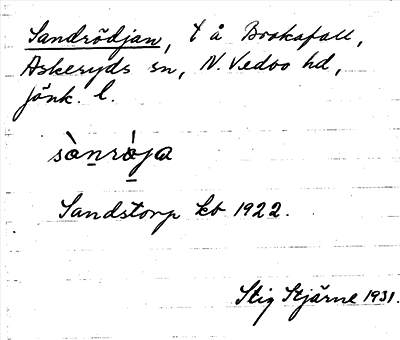 Sandrödjan, t å Brokafall,
Askeryds sn, N. Vedbo hd,
Jönk. l.
sànròja
Sandstorp kb 1922.
Stig Stjärne 1931.